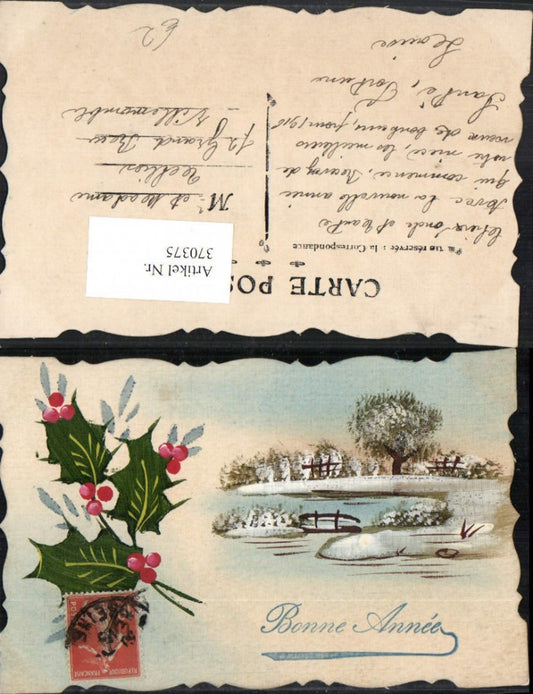 CARTE POS
tie réservée à la Correspondance
Artikel Nr.
370375
Chers oncle et tante
Avec la nouvelle année
qui commence, recevez de
votre nièce, les meilleurs
vœux de bonheur, pour 1915
Santé, Fortune
Louise
M et Madame
72 Grand Rue
Villemomble
62
Bonne Année
REPUBLIQUE FRANÇAISE
POSTES